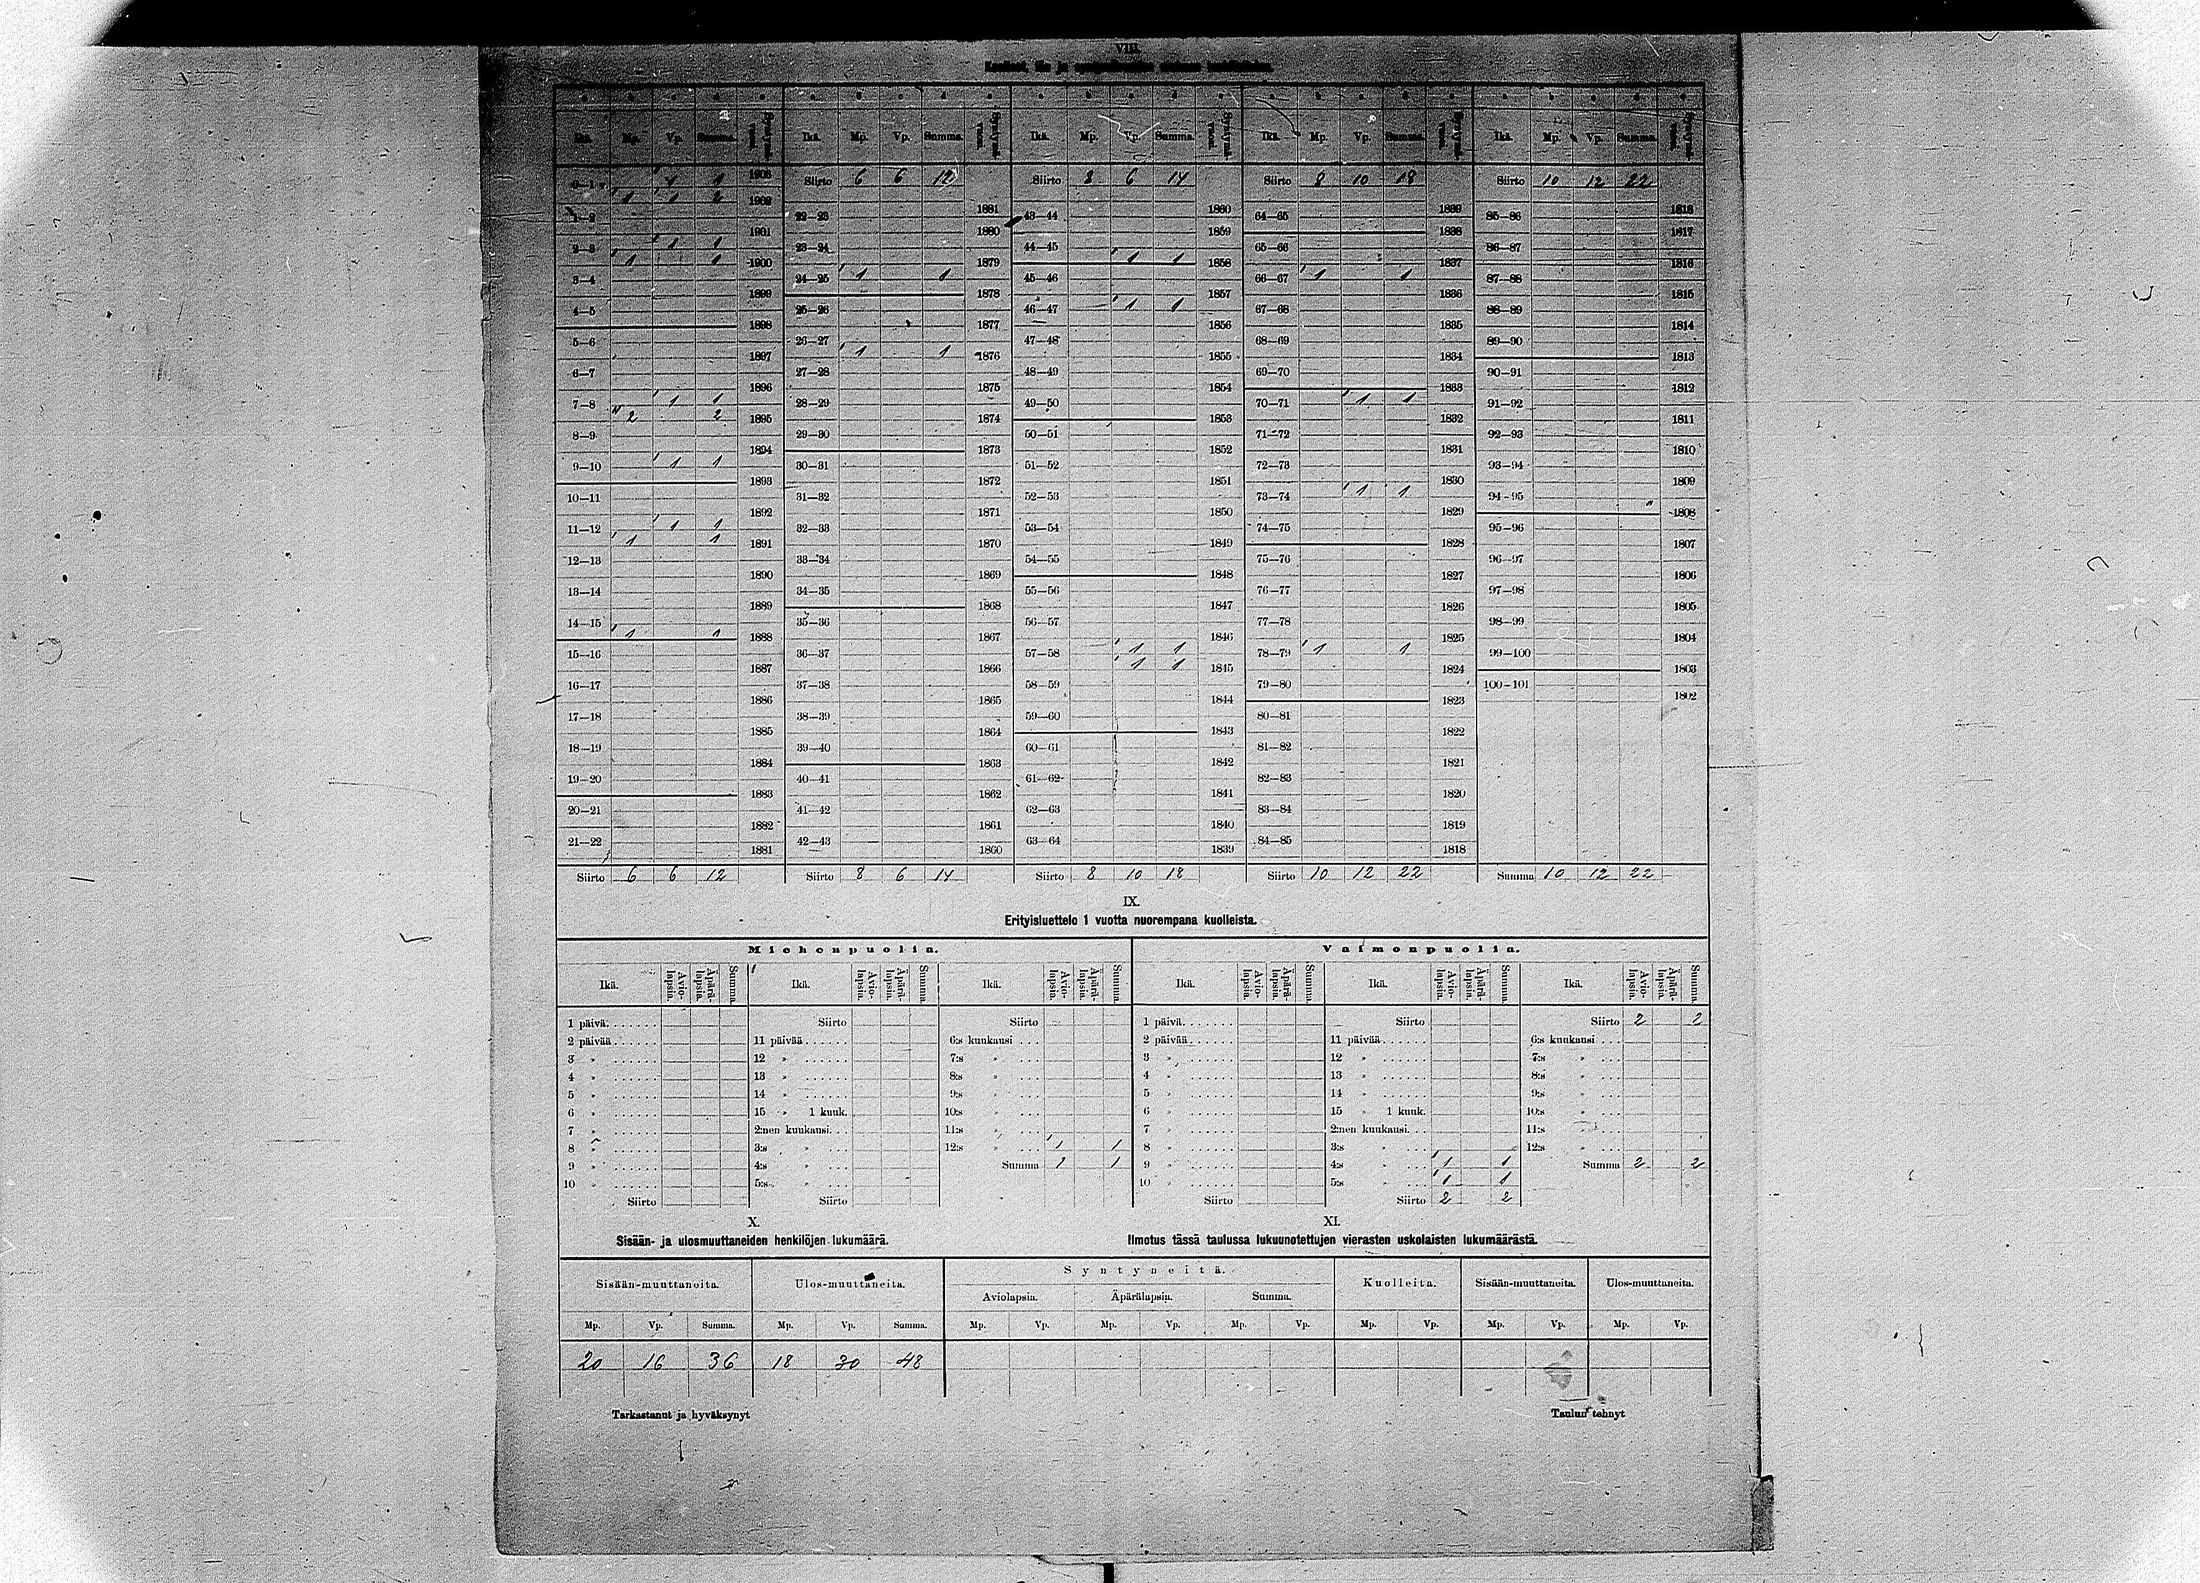 VIII.
Ikä. Mp. Vp. Summa. Syntymä-vuosi. Ikä. Mp. Vp. Summa. Syntymä-vuosi. Ikä. Mp. Vp. Summa. Syntymä-vuosi. Ikä. Mp. Vp. Summa. Syntymä-vuosi. Ikä. Mp. Vp. Summa. Syntymä-vuosi.
0—1 1 1 1903 Siirto 6 6 12 Siirto 8 6 14 Siirto 8 10 18 Siirto 10 12 22
1 1 2 1902
1—2 22—23 1881 43—44 1860 64—65 1839 85—86 1818
1901 1880 1859 1838 1817
2—3 1 1 23—24 44—45 65—66 86—87
1 1 1900 1879 1 1 1858 1837 1816
3—4 24—25 1 1 45—46 66—67 1 1 87—88
1899 1878 1857 1836 1815
4—5 25—26 46—47 1 1 67—68 88—89
1898 1877 1856 1835 1814
5—6 26—27 47—48 68—69 89—90
1897 1 1 1876 1855 1834 1813
6—7 27—28 48—49 69—70 90—91
1896 1875 1854 1833 1812
7—8 1 1 28—29 49—50 70—71 1 1 91—92
2 2 1895 1874 1853 1832 1811
8—9 29—30 50—51 71—72 92—93
1894 1873 1852 1831 1810
9—10 1 1 30—31 51—52 72—73 93—94
1893 1872 1851 1830 1809
10—11 31—32 52—53 73—74 1 1 94-95
1892 1871 1850 1829 1808
11—12 1 1 32—33 53—54 74—75 95—96
1 1 1891 1870 1849 1828 1807
12—13 33—34 54—55 75—76 96—97
1890 1869 1848 1827 1806
13—14 34—35 55—56 76—77 97—98
1889 1868 1847 1826 1805
14—15 35—36 56—57 77—78 98—99
1 1 1888 1867 1846 1825 1804
15—16 36—37 57—58 1 1 78—79 1 1 99—100
1887 1866 1 1 1845 1824 1803
16—17 37—38 58—59 79—80 100-101
1886 1865 1844 1823 1802
17—18 38—39 59—60 80—81
1885 1864 1843 1822
18—19 39—40 60—61 81—82
1884 1863 1842 1821
19—20 40—41 61—62 82—83
1883 1862 1841 1820
20—21 41—42 62—63 83—84
1882 1861 1840 1819
21—22 42—43 63—64 84—85
1881 1860 1839 1818
Siirto 6 6 12 Siirto 8 6 14 Siirto 8 10 18 Siirto 10 12 22 Summa 10 12 22
IX.
Erityisluettelo 1 vuotta nuorempana kuolleista.
Miehenpuolia. Vaimonpuolia.
Ikä. Avio-lapsia. Äpärä-lapsia. Summa. Ikä. Avio-lapsia. Äpärä-lapsia. Summa. Ikä. Avio-lapsia. Äpärä-lapsia. Summa. Ikä. Avio-lapsia. Äpärä-lapsia. Summa. Ikä. Avio-lapsia. Äpärä-lapsia. Summa. Ikä. Avio-lapsia. Äpärä-lapsia. Summa.
1 päivä. Siirto Siirto 1 päivä. Siirto Siirto 2 2
2 päivää 11 päivää 6:s kuukausi 2 päivää 11 päivää 6:s kuukausi
3 » 12 » 7:s » 3 » 12 » 7:s »
4 » 13 » 8:s » 4 » 13 » 8:s »
5 » 14 » 9:s » 5 » 14 » 9:s »
6 » 15 » 1 kuuk. 10:s » 6 » 15 » 1 kuuk. 10:s »
7 » 2:nen kuukausi 11:s » 7 » 2:nen kuukausi 11:s »
8 » 3:s » 12:s » 1 1 8 » 3:s » 12:s »
9 » 4:s » Summa 1 1 9 » 4:s » 1 1 Summa 2 2
10 » 5:s » 10 » 5:s » 1 1
Siirto Siirto Siirto Siirto 2 2
X. XI.
Sisään- ja ulosmuuttaneiden henkilöjen lukumäärä. Ilmotus tässä taulussa lukuunotettujen vierasten uskolaisten lukumäärästä.
Sisään-muuttaneita. Ulos-muuttaneita. Syntyneitä. Kuolleita. Sisään-muuttaneita. Ulos-muuttaneita.
Aviolapsia. Äpärälapsia. Summa.
Mp. Vp. Summa. Mp. Vp. Summa. Mp. Vp. Mp. Vp. Mp. Vp. Mp. Vp. Mp. Vp. Mp. Vp.
20 16 36 18 30 48
Tarkastanut ja hyväksynyt Taulun tehnyt